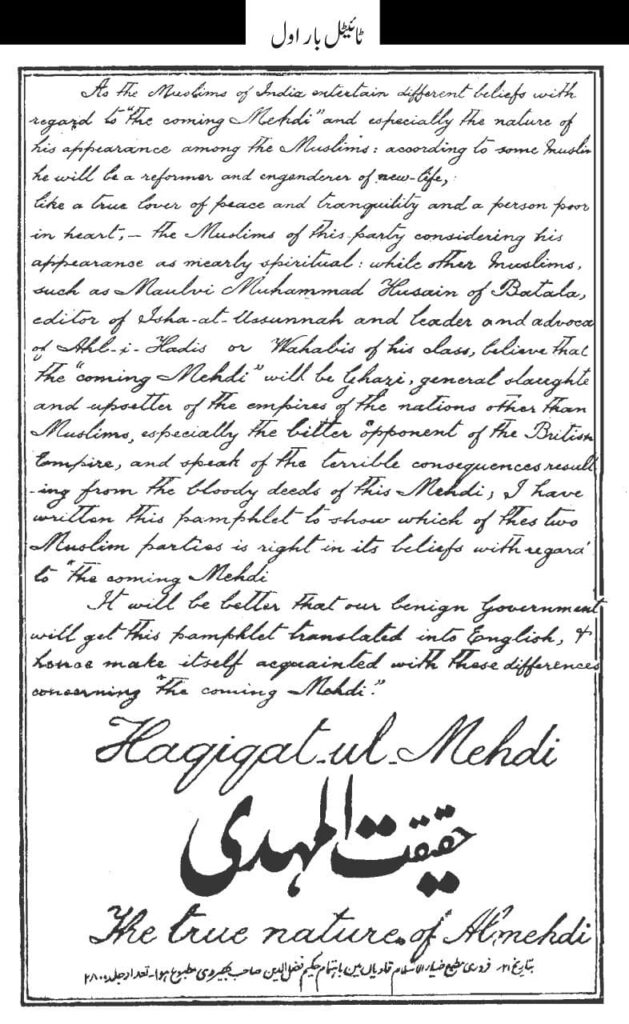 ٹائیٹل بار اول
As the Muslims of India entertain different beliefs with
regard to "the coming Mehdi" and especially the nature of
his appearance among the Muslims: according to some Muslim
he will be a reformer and engenderer of new-life,
like a true lover of peace and tranquility and a person poor
in heart,— the Muslims of this party considering his
appearance as mearly spiritual: while other Muslims,
such as Maulvi Muhammad Husain of Batala,
editor of Isha-at-Ussunnah and leader and advoca
of Ahl-i-Hadis or Wahabis of his class, believe that
the "coming Mehdi" will be Ghazi, general slaughte
and upsetter of the empires of the nations other than
Muslims, especially the bitter opponent of the British
Empire, and speak of the terrible consequences result
-ing from the bloody deeds of this Mehdi; I have
written this pamphlet to show which of thes two
Muslim parties is right in its beliefs with regard
to "the coming Mehdi
It will be better that our benign Government
will get this pamphlet translated into English, &
hence make itself acquainted with these differences
concerning "the coming Mehdi."
Haqiqat-ul-Mehdi
حقیقت المہدی
The true nature of Almehdi
بتاریخ ۲۱ فروری مطبع ضیاء الاسلام قادیاں میں باہتمام حکیم فضل الدین صاحب بھیروی مطبوع ہوا۔ تعداد جلد ۲۸۰۰